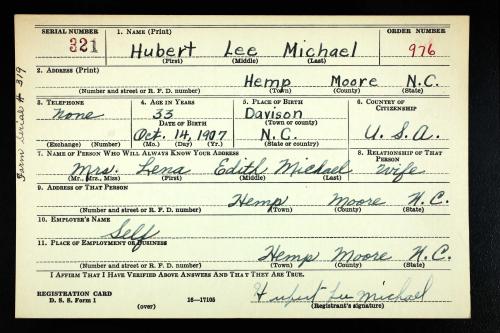 SERIAL NUMBER 1. NAME (Print) ORDER NUMBER
321 Hubert Lee Michael 976
(First) (Middle) (Last)
2. ADDRESS (Print)
Hemp Moore N.C.
(Number and street or R. F. D. number) (Town) (County) (State)
3. TELEPHONE 4. AGE IN YEARS 5. PLACE OF BIRTH 6. COUNTRY OF CITIZENSHIP
None 33 Davison
DATE OF BIRTH (Town or county)
Oct. 14, 1907 N.C. U.S.A.
(Exchange) (Number) (Mo.) (Day) (Yr.) (State or country)
7. NAME OF PERSON WHO WILL ALWAYS KNOW YOUR ADDRESS 8. RELATIONSHIP OF THAT PERSON
Mrs. Lena Edith Michael Wife
(Mr., Mrs., Miss) (First) (Middle) (Last)
9. ADDRESS OF THAT PERSON
Hemp Moore N.C.
(Number and street or R. F. D. number) (Town) (County) (State)
10. EMPLOYER'S NAME
Self
11. PLACE OF EMPLOYMENT OR BUSINESS
Hemp Moore N.C.
(Number and street or R. F. D. number) (Town) (County) (State)
I AFFIRM THAT I HAVE VERIFIED ABOVE ANSWERS AND THAT THEY ARE TRUE.
REGISTRATION CARD
D. S. S. Form 1 (over) 16—17105
Hubert Lee Michael
(Registrant's signature)
Form Serial # 319